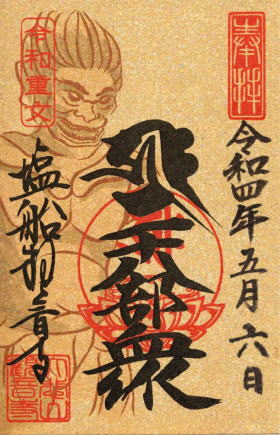 奉拝
令和四年五月六日
二十八部衆
令和重文
塩船観音寺